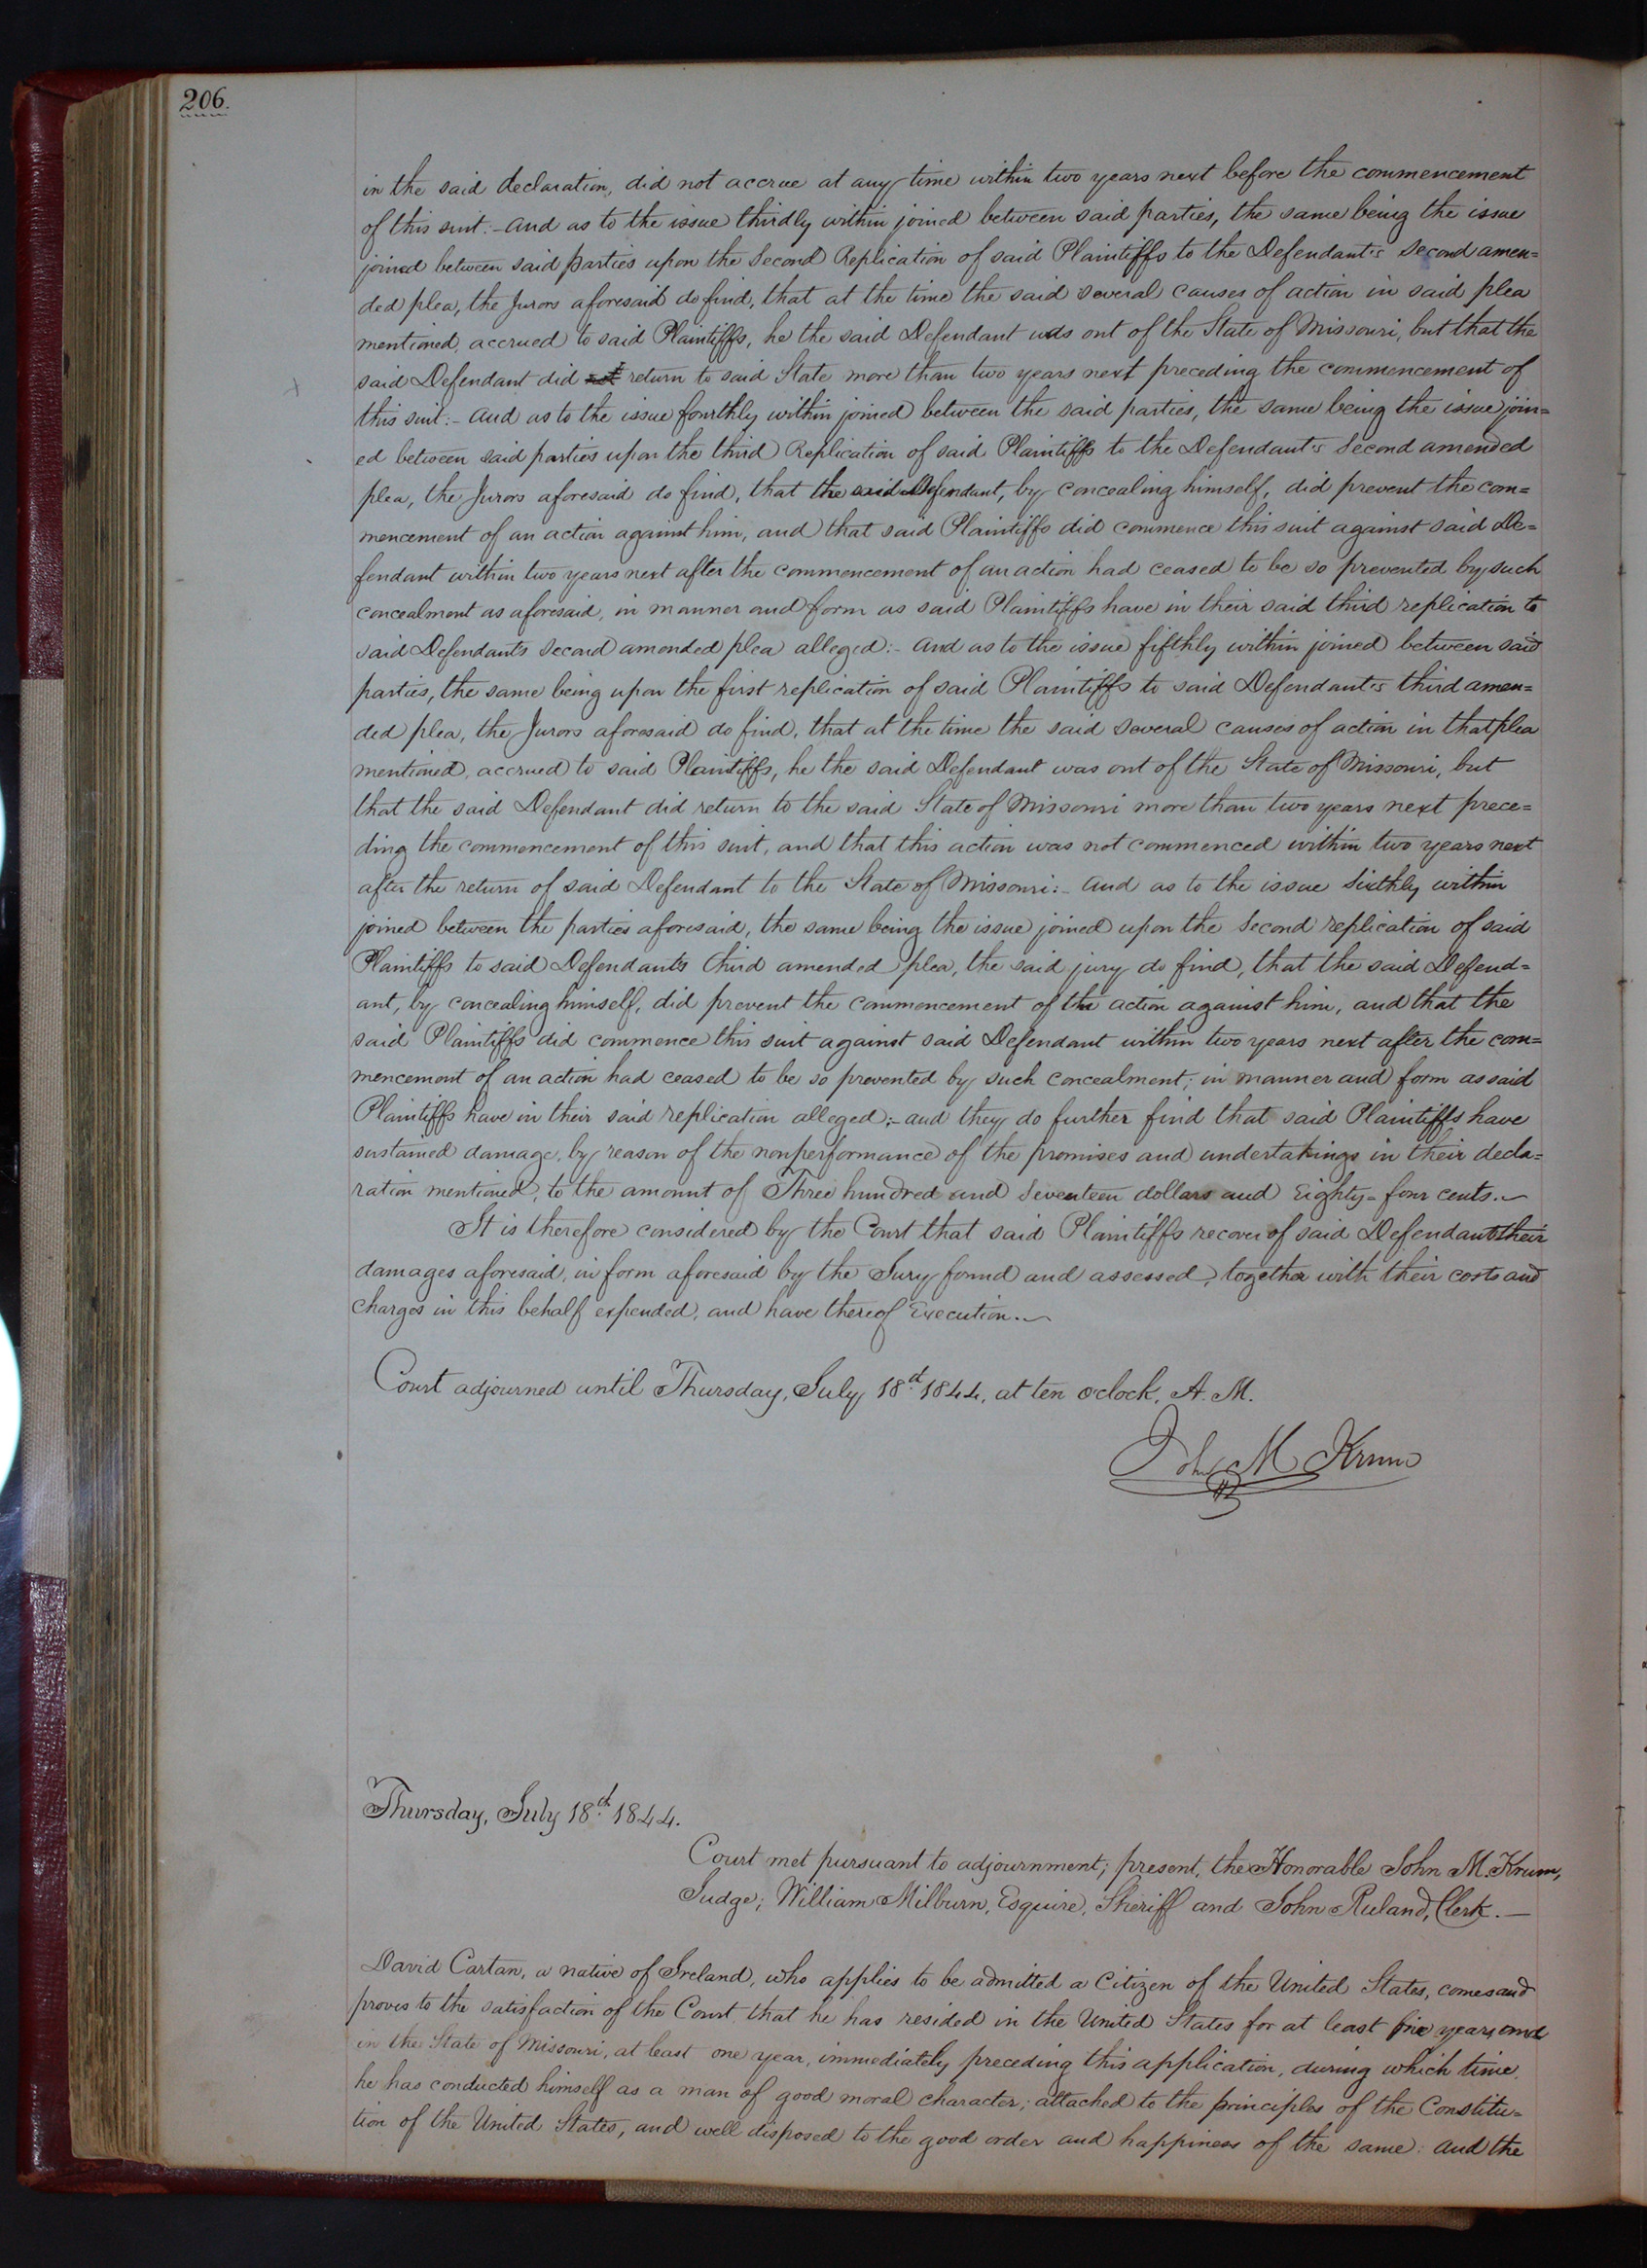 206.
in the said declaration, did not accrue at any time within two years next before the commencement
of this suit. - And as to the issue thirdly within joined between said parties, the same being the issue
joined between said parties upon the Second Replication of said Plaintiffs to the Defendant's Second amen=
ded plea, the Jurors aforesaid do find, that at the time the said several causes of action in said plea
mentioned, accrued to said Plaintiffs, he the said Defendant was out of the State of Missouri, but that the
said Defendant did not return to said State more than two years next preceding the commencement of
this suit:- And as to the issue fourthly within joined between the said parties, the same being the issue join=
ed between said parties upon the third Replication of said Plaintiffs to the Defendant's Second amended
plea, the Jurors aforesaid do find, that the said Defendant, by concealing himself, did prevent the com=
mencement of an action against him, and that said Plaintiffs did commence this suit against said De=
fendant within two years next after the commencement of an action had ceased to be so prevented by such
concealment as aforesaid, in manner and form as said Plaintiffs have in their said third replication to
said Defendants Second amended plea alleged:- And as to the issue fifthly within joined between said
parties, the same being upon the first replication of said Plaintiffs to said Defendant's third amen=
ded plea, the Jurors aforesaid do find, that at the time the said several causes of action in that plea
mentioned, accrued to said Plaintiffs, he the said Defendant was out of the State of Missouri, but
that the said Defendant did return to the said State of Missouri more than two years next prece=
ding the commencement of this suit, and that this action was not commenced within two years next
after the return of said Defendant to the State of Missouri:- And as to the issue Sixthly within
joined between the parties aforesaid, the same being the issue joined upon the Second replication of said
Plaintiffs to said Defendants third amended plea, the said jury do find, that the said Defend=
ant, by concealing himself, did prevent the commencement of the action against him, and that the
said Plaintiffs did commence this suit against said Defendant within two years next after the com=
mencement of an action had ceased to be so prevented by such concealment; in manner and form as said
Plaintiffs have in their said replication alleged:- and they do further find that said Plaintiffs have
sustained damage, by reason of the nonperformance of the promises and undertakings in their decla=
ration mentioned, to the amount of Three hundred and Seventeen dollars and Eighty=four cents.
It is therefore considered by the Court that said Plaintiffs recover of said Defendant their
damages aforesaid, in form aforesaid by the Jury found and assessed, together with their costs and
charges in this behalf expended, and have thereof Execution.
Court adjourned until Thursday, July 18th 1844, at ten oclock, A. M.
John M Krum
Thursday, July 18th 1844.
Court met pursuant to adjournment; present, the Honorable John M. Krum,
Judge; William Milburn, Esquire, Sheriff and John Ruland, Clerk. -
David Cartan, a native of Ireland, who applies to be admitted a Citizen of the United States, comes and
proves to the satisfaction of the Court, that he has resided in the United States for at least five years, and
in the State of Missouri, at least one year, immediately preceding this application, during which time,
he has conducted himself as a man of good moral character; attached to the principles of the Constitu=
tion of the United States, and well disposed to the good order and happiness of the same: And the